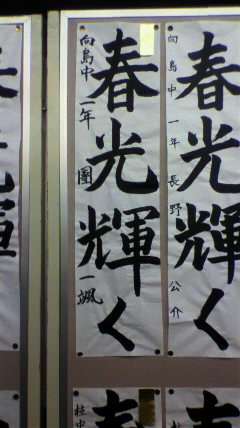 春光輝く
向島中 一年 長野 公介
春光輝く
向島中 一年 園 一颯
春
春
桂中